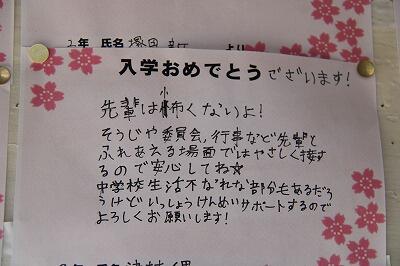 2年 氏名 塚田 より
入学おめでとうございます!
先輩は怖くないよ!
そうじや委員会,行事など先輩と
ふれあえる場面ではやさしく接す
るので安心してね☆
中学校生活不なれな部分もあるだろ
うけどいっしょうけんめいサポートするので
よろしくお願いします!